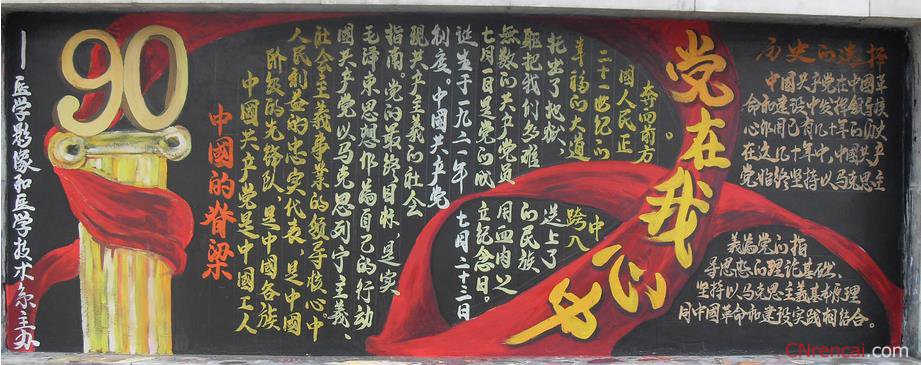 ——医学影像和医学技术系主办
90
中國的脊梁
中國共产党是中國工人
阶级的先锋队，是中國各族
人民利益的忠实代表，是中國
社会主義事業的领导核心。中
國共产党以马克思列宁主義、
毛泽東思想作為自己的行动
指南。党的最终目标，是实
現共产主義的社会
制度。中國共产党
诞生于一九二一年七月二十三日
七月一日是党的成立纪念日。
無数的共产党員用血肉之
躯把我们多难的民族
托出了地狱、送上了
幸福的大道跨入
二十一世纪的中
國人民正
奔向前方。
党在我心中
历史的选择
中國共产党在中国革
命和建设中发挥领导核
心作用已有几十年的历史
在这几十年中，中國共产
党始终坚持以马克思主
義為党的指
导思想的理论基础、
坚持以马克思主義基本原理
同中國革命和建设实践相结合。
CNrencai.com